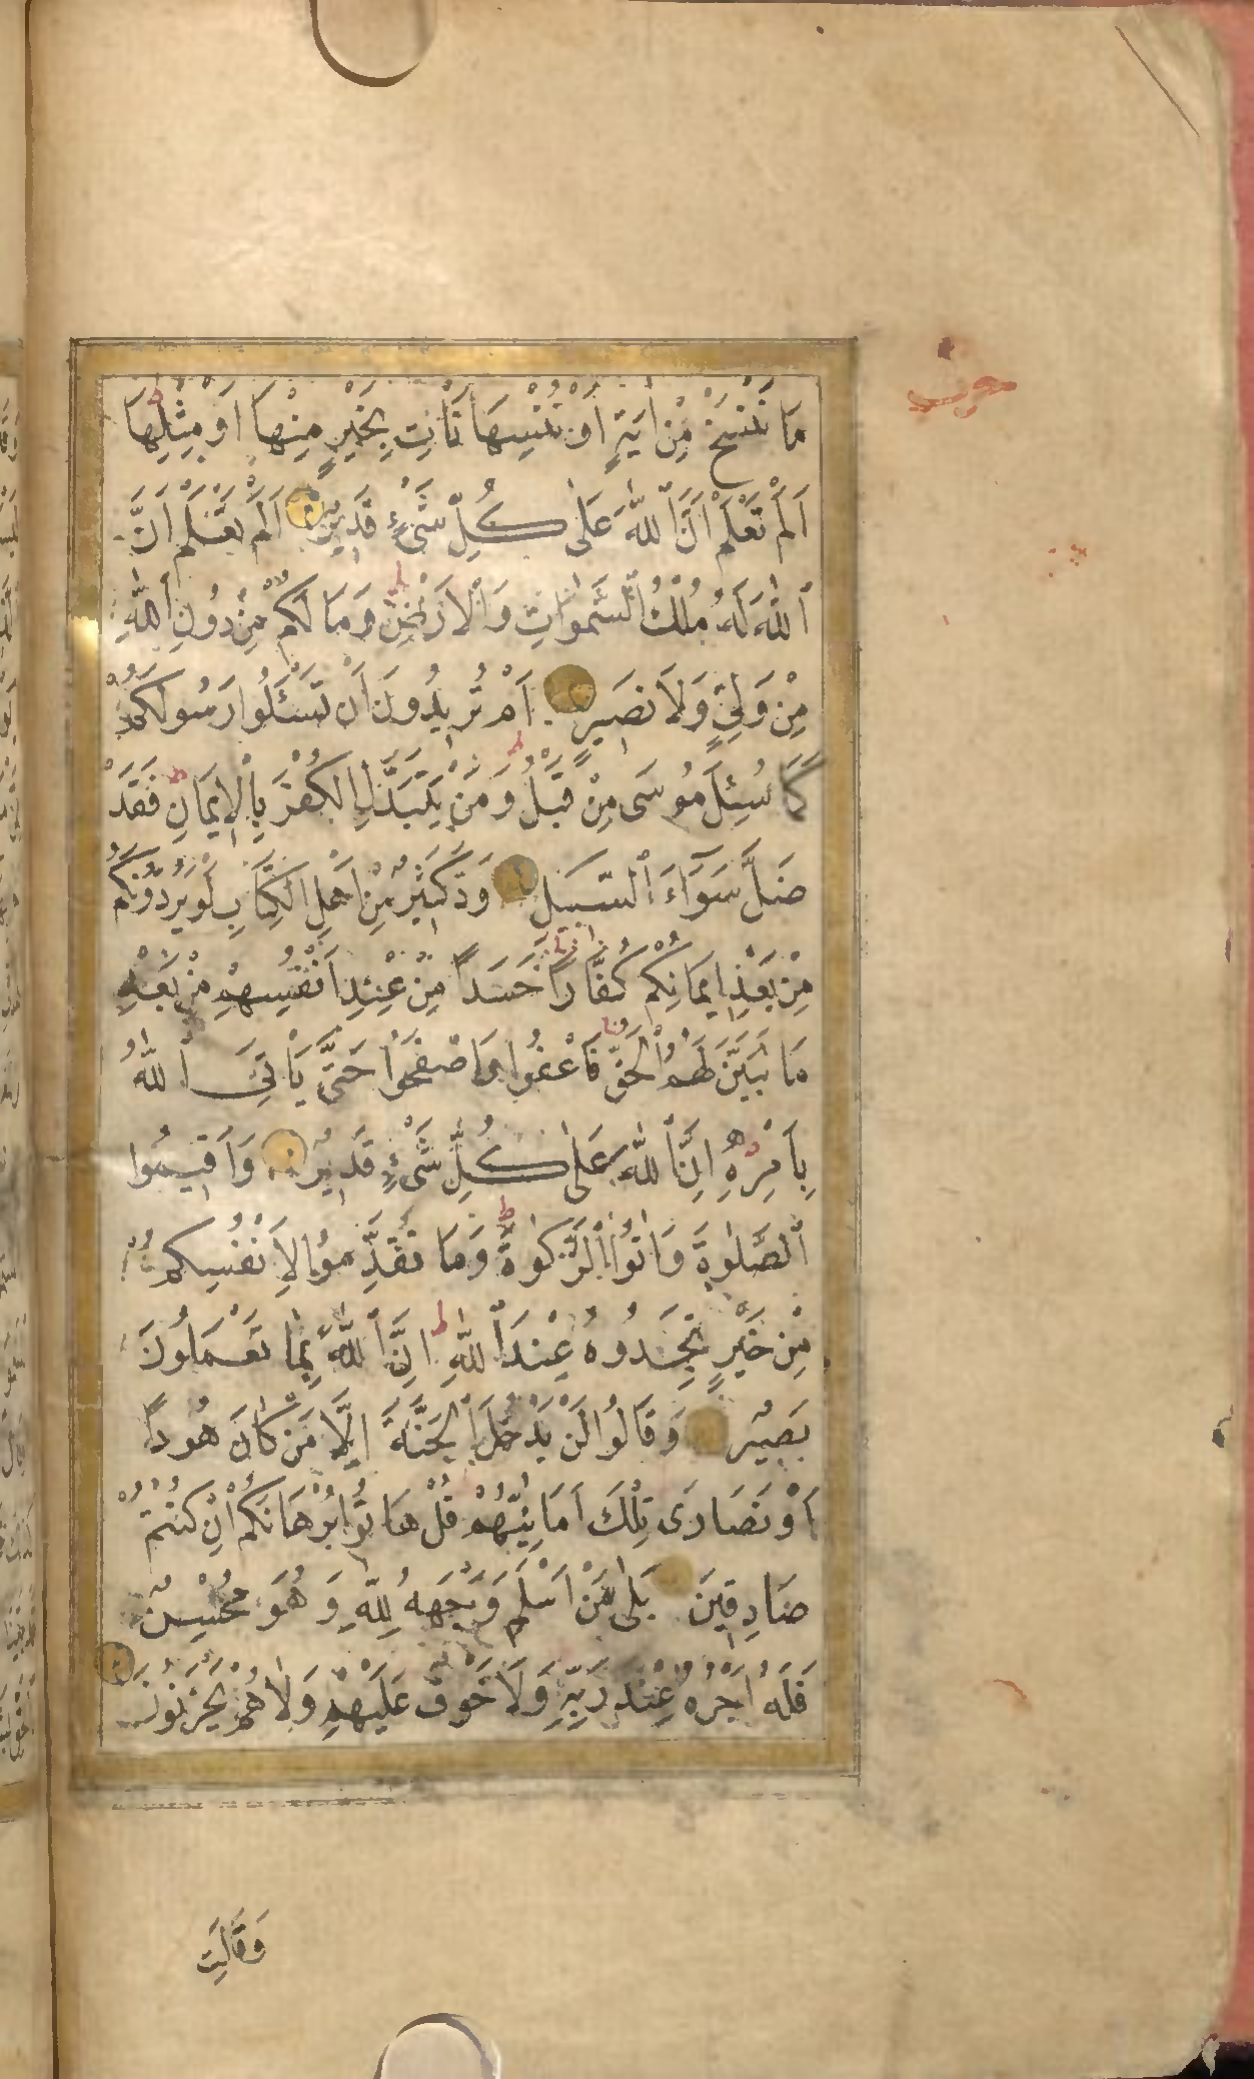 حزب
مَا نَنْسَخْ مِنْ اٰيَةٍ اَوْ نُنْسِهَا نَأْتِ بِخَيْرٍ مِنْهَا اَوْ مِثْلِهَا ط
اَلَمْ تَعْلَمْ اَنَّ ٱللّٰهَ عَلٰى كُلِّ شَىْءٍ قَدِيرٌ اَلَمْ تَعْلَمْ اَنَّ
ٱللّٰهَ لَهُ مُلْكُ ٱلسَّمٰوَاتِ وَٱلْاَرْضِ ط وَمَا لَكُمْ مِنْ دُونِ ٱللّٰهِ
مِنْ وَلِىٍّ وَلَا نَصِيرٍ اَمْ تُرِيدُونَ اَنْ تَسْـَٔلُوا رَسُولَكُمْ
كَمَا سُئِلَ مُوسٰى مِنْ قَبْلُ ط وَمَنْ يَتَبَدَّلِ ٱلْكُفْرَ بِٱلْاِيمَانِ فَقَدْ
ضَلَّ سَوَآءَ ٱلسَّبِيلِ وَدَّ كَثِيرٌ مِنْ اَهْلِ ٱلْكِتَابِ لَوْ يَرُدُّونَكُمْ
مِنْ بَعْدِ اِيمَانِكُمْ كُفَّارًا حَسَدًا مِنْ عِنْدِ اَنْفُسِهِمْ مِنْ بَعْدِ
مَا تَبَيَّنَ لَهُمُ ٱلْحَقُّ فَاعْفُوا وَاصْفَحُوا حَتّٰى يَأْتِىَ ٱللّٰهُ
بِاَمْرِهِ ط اِنَّ ٱللّٰهَ عَلٰى كُلِّ شَىْءٍ قَدِيرٌ وَاَقِيمُوا
ٱلصَّلٰوةَ وَاٰتُوا ٱلزَّكٰوةَ ط وَمَا تُقَدِّمُوا لِاَنْفُسِكُمْ
مِنْ خَيْرٍ تَجِدُوهُ عِنْدَ ٱللّٰهِ ط اِنَّ ٱللّٰهَ بِمَا تَعْمَلُونَ
بَصِيرٌ وَقَالُوا لَنْ يَدْخُلَ ٱلْجَنَّةَ اِلَّا مَنْ كَانَ هُودًا
اَوْ نَصَارٰى تِلْكَ اَمَانِيُّهُمْ قُلْ هَاتُوا بُرْهَانَكُمْ اِنْ كُنْتُمْ
صَادِقِينَ بَلٰى مَنْ اَسْلَمَ وَجْهَهُ لِلّٰهِ وَهُوَ مُحْسِنٌ
فَلَهُ اَجْرُهُ عِنْدَ رَبِّهِ وَلَا خَوْفٌ عَلَيْهِمْ وَلَا هُمْ يَحْزَنُونَ
وَقَالَتِ